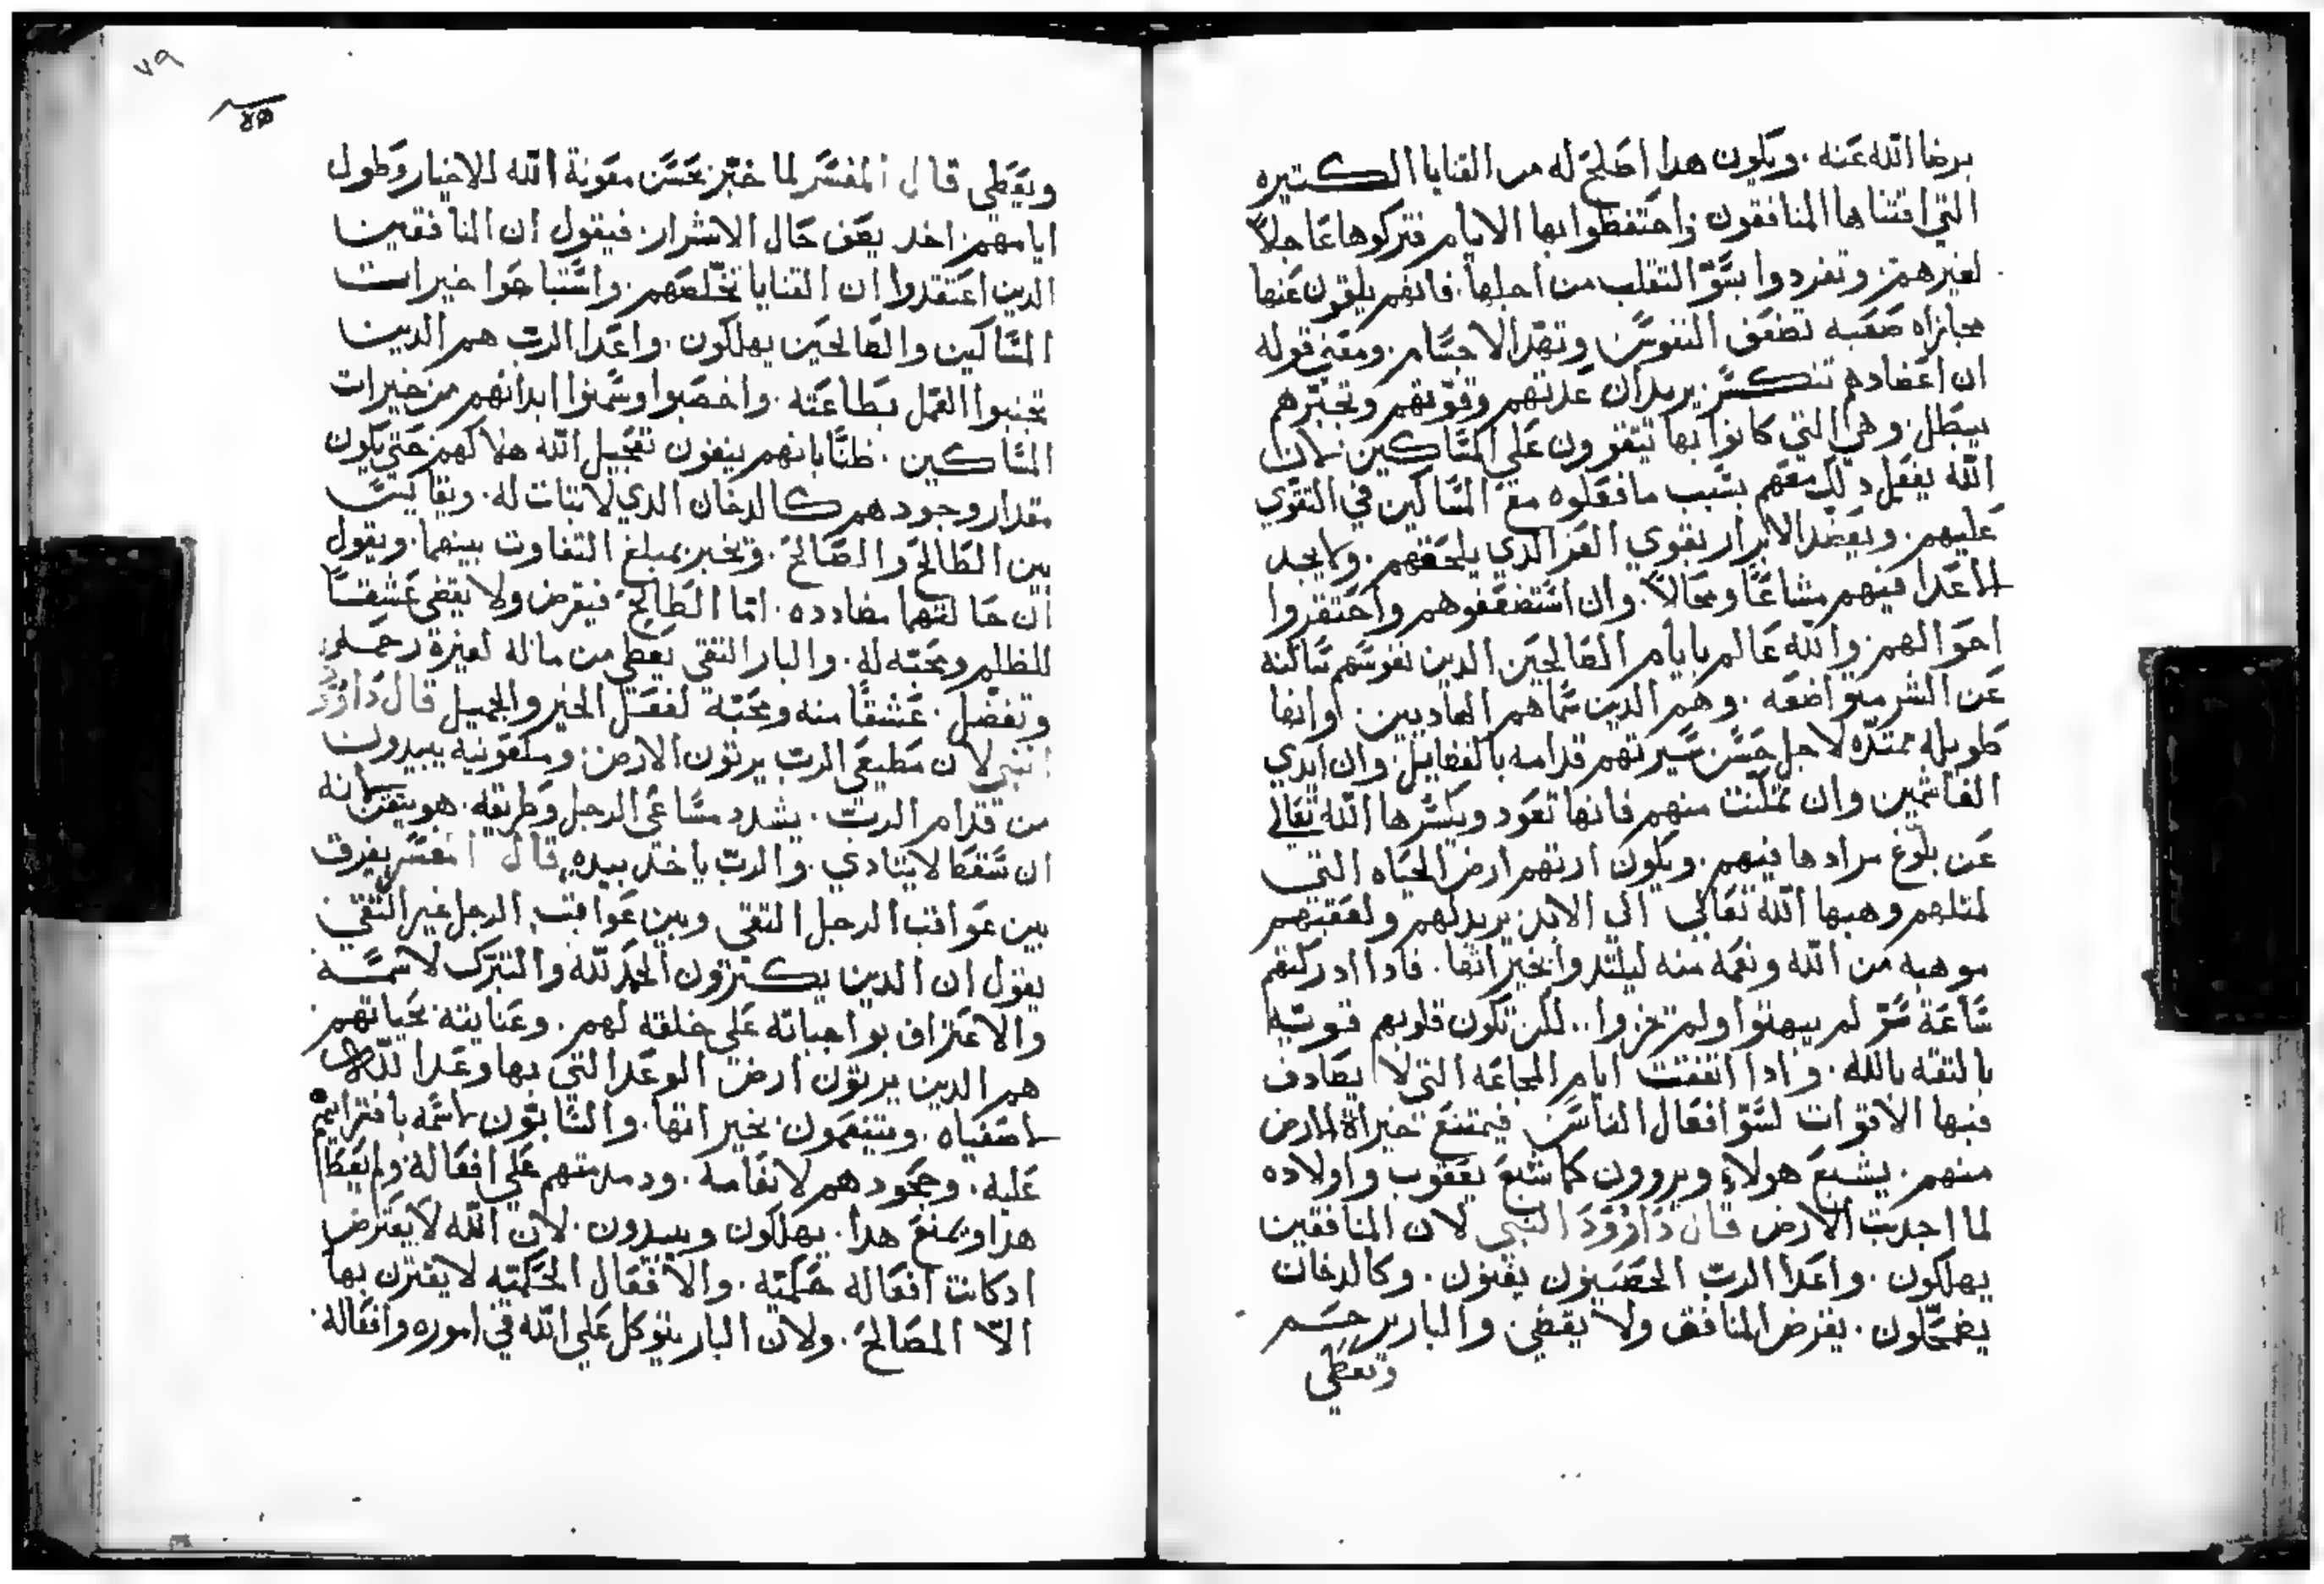 برضا الله عنه . ويكون هدا اصلح له من القنايا الكتيره
التي اقتناها المنافقون واحتفظوا بها الايام فتركوها عاجلاً
لغيرهم . وتفردوا بسو التقلب من اجلها . فانهم يلقون عنها
مجازاه صعبه تضعف النفوس وتهد الاجسام . ومعني قوله
ان اعضادهم تنكسر يريد ان عدتهم وقوتهم وتجبرهم
يبطل . وهي التي كانوا بها يتقوون علي المساكين لان
الله يفعل دلك معهم بسبب ما فعلوه مع المساكين في التقوي
عليهم . ويعضد الابرار بقوي العز الدي يلحقهم . ولا يجد
الاعدا فيهم مشاغاً ومجالاً . وان استضعفوهم واحتقروا
احوالهم والله عالم بايام الصالحين الدين نفوسهم ساكنه
عن الشر متواضعه . وهم الدين سماهم العاديين . اوانها
طويله ممتده لاجل حسن سيرتهم قدامه بالفضايل . وان ايدي
الغاشمين وان تمكنت منهم فانها تعود ويكسرها الله تعالي
عن بلوغ مرادها فيهم . ويكون ارتهم ارض الحياه التي
لمتلهم وهبها الله تعالي الي الابد يريد لهم ولعقبهم
موهبه من الله ونعمه منه ليلتدوا بخيراتها . فادا ادركتهم
ساعة سو لم يبهتوا ولم تخزوا .. لكن تكون قلوبهم قويه
بالتقه بالله . وادا اتفقت ايام المجاعه التي لا يصادف
فيها الاقوات لسو افعال الناس فيمتنع خيراة الارض
منهم . يشبع هولاء ويروون كما شبع يعقوب واولاده
لما اجدبت الارض قال داوود النبي لان المنافقين
يهلكون . واعدا الرب الخصيبون يفنون . وكالدخان
يضمحلون . يقترض المنافق ولا يقضي والبار يرحم
وتعطي
٧٩
ويعطي قال المفسر لما خبر بحسن معونة الله للاخيار وطول
ايامهم . اخد يصف حال الاشرار . فيقول ان المنافقين
الدين اعتقدوا ان القنايا تخلصهم . واستباحوا خيرات
المساكين والصالحين يهلكون . واعدا الرب هم الدين
تجنبوا العمل بطاعته . واخصبوا وسمنوا ابدانهم من خيرات
المساكين . ظناً بانهم يبقون تعجيل الله هلاكهم حتي يكون
مقدار وجودهم كالدخان الدي لا تبات له . ويقايس
بين الطالح والصالح . وتخبر بمبلغ التفاوت بينهما . ويقول
ان حالتهما مضادده . اما الطالح فيقرض ولا يقضي عشقاً
للظلم ومحبه له . والبار التقي يعطي من ماله لغيره رحمه
وتفضل . عشقاً منه ومحبة لفعل الخير والجميل قال داوود
النبي لان مطيعي الرب يرتون الارض وملعونيه يبيدون
من قدام الرب . يشدد مساعي الرجل وطريقه . هو يتقن لانه
ان سقط لا يتادي . والرب ياخد بيده قال المفسر يفرق
بين عواقب الرجل التقي وبين عواقب الرجل غير التقي
يقول ان الدين يكترون الحمد لله والتبرك لاسمه
والاعتراف بواجباته علي خلقه لهم . وعنايته بحياتهم
هم الدين يرتون ارض الوعد التي بها وعد الله
لاصفياه . ويتنعمون بخيراتها . والسابون لاسمه بافترايهم
عليه . وجحودهم لانعامه . ودمدمتهم علي افعاله ولم يعط
هدا ويمنع هدا . يهلكون ويبيدون . لان الله لا يعترض
ادكانت افعاله حكميه . والافعال الحكميه لا يقترن بها
الا المصالح . ولان البار يتوكل علي الله في اموره وافعاله .